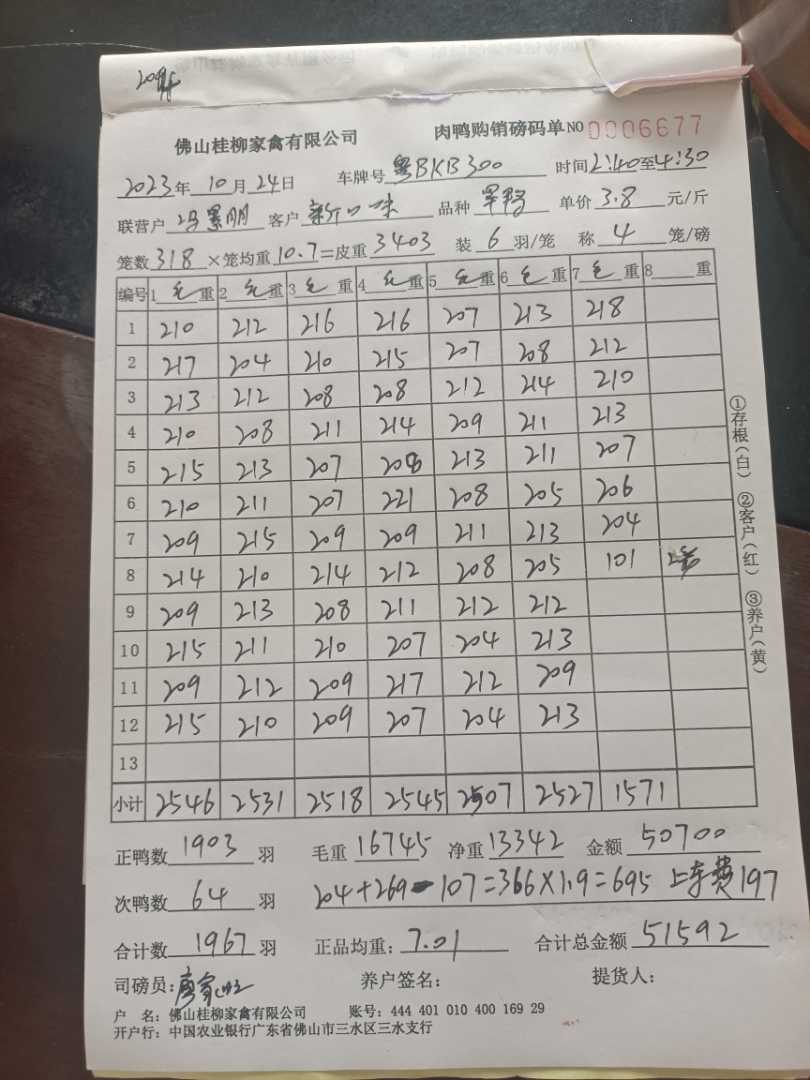 佛山桂柳家禽有限公司 肉鸭购销磅码单 NO 0006677
2023年10月24日 车牌号 粤BKB300 时间2:40至4:30
联营户 冯景朋 客户 新口味 品种 单价 3.8 元/斤
笼数 318 ×笼均重 10.7=皮重 3403 装 6 羽/笼 称 4 笼/磅
编号 1 毛 重 2 毛 重 3 毛 重 4 毛 重 5 毛 重 6 毛 重 7 毛 重 8 重
1 210 212 216 216 207 213 218
2 217 204 210 215 207 208 212
3 213 212 208 208 212 214 210
4 210 208 211 214 209 211 213
5 215 213 207 208 213 211 207
6 210 211 207 221 208 205 206
7 209 215 209 209 211 213 204
8 214 210 214 212 208 205 101
9 209 213 208 211 212 212
10 215 211 210 207 204 213
11 209 212 209 217 212 209
12 215 210 209 207 204 213
13
小计 2546 2531 2518 2545 2507 2527 1571
正鸭数 1903 羽 毛重 16745 净重 13342 金额 50700
次鸭数 64 羽 204+269-107=366×1.9=695 上车费197
合计数 1967 羽 正品均重: 7.01 合计总金额 51592
司磅员: 养户签名: 提货人:
户 名: 佛山桂柳家禽有限公司 账号: 444 401 010 400 169 29
开户行: 中国农业银行广东省佛山市三水区三水支行
①存根(白) ②客户(红) ③养户(黄)